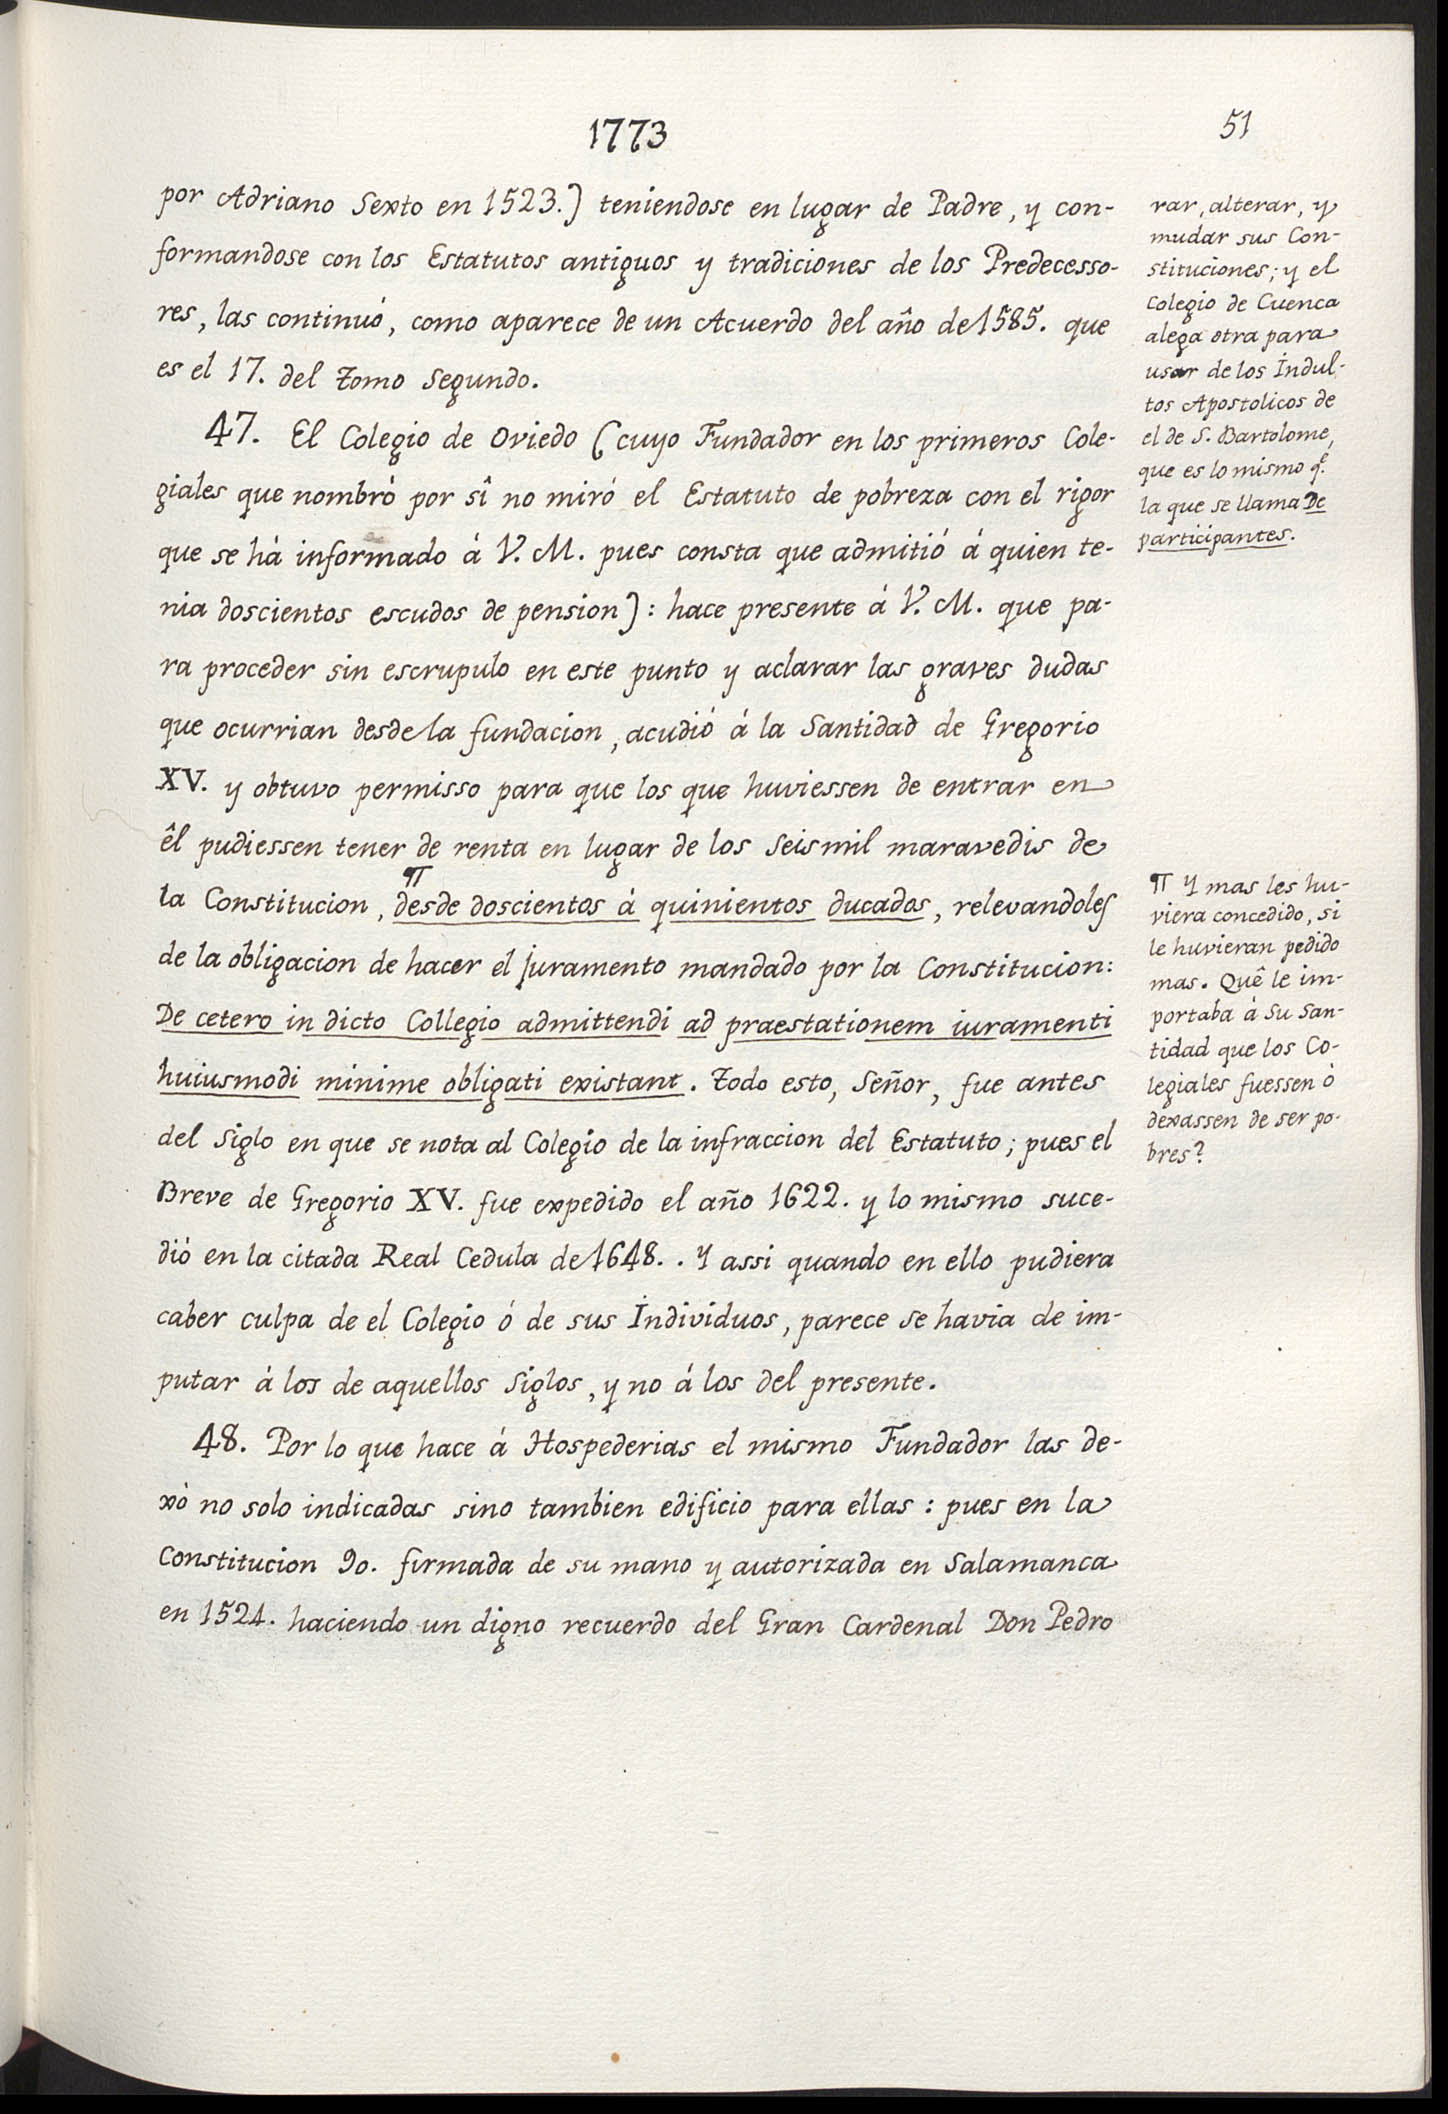 1773
51
por Adriano Sexto en 1523.) teniendose en lugar de Padre, y con-
formandose con los Estatutos antiguos y tradiciones de los Predecesso-
res, las continuó, como aparece de un Acuerdo del año de 1585. que
es el 17. del Tomo segundo.
47. El Colegio de Oviedo (cuyo Fundador en los primeros Cole-
giales que nombró por sî no miró el Estatuto de pobreza con el rigor
que se há informado á V. M. pues consta que admitió á quien te-
nia doscientos escudos de pension): hace presente á V. M. que pa-
ra proceder sin escrupulo en este punto y aclarar las graves dudas
que ocurrian desde la fundacion, acudió á la Santidad de Gregorio
XV. y obtuvo permisso para que los que huviessen de entrar en
êl pudiessen tener de renta en lugar de los seismil maravedis de
¶
la Constitucion, desde doscientos á quinientos ducados, relevandoles
de la obligacion de hacer el juramento mandado por la Constitucion:
De cetero in dicto Collegio admittendi ad praestationem iuramenti
huiusmodi minime obligati existant. Todo esto, Señor, fue antes
del Siglo en que se nota al Colegio de la infraccion del Estatuto; pues el
Breve de Gregorio XV. fue expedido el año 1622. y lo mismo suce-
dió en la citada Real Cedula de 1648.. Y assi quando en ello pudiera
caber culpa de el Colegio ó de sus Individuos, parece se havia de im-
putar á los de aquellos siglos, y no á los del presente.
48. Por lo que hace á Hospederias el mismo Fundador las de-
xò no solo indicadas sino tambien edificio para ellas: pues en la
Constitucion 90. firmada de su mano y autorizada en Salamanca
en 1524. haciendo un digno recuerdo del Gran Cardenal Don Pedro
rar, alterar, y
mudar sus Con-
stituciones; y el
Colegio de Cuenca
alega otra para
usar de los Indul-
tos Apostolicos de
el de S. Bartolome,
que es lo mismo q.e
la que se llama De
participantes.
¶ Y mas les hu-
viera concedido, si
le huvieran pedido
mas. Quê le im-
portaba á su San-
tidad que los Co-
legiales fuessen ò
dexassen de ser po-
bres?